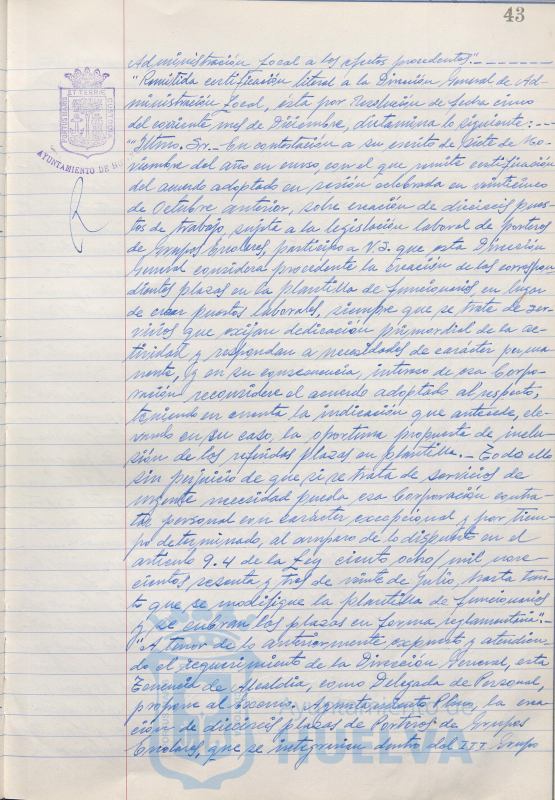 43
Administración Local a los efectos procedentes".--------
"Remitida certificación literal a la Dirección General de Ad-
ministración Local, ésta por resolución de fecha cinco
del corriente mes de Diciembre, dictamina lo siguiente:--
"Iltmo. Sr.- En contestación a su escrito de siete de No-
viembre del año en curso, con el que remite certificación
del acuerdo adoptado en sesión celebrada en veinticinco
de Octubre anterior, sobre creación de dieciseis pues-
tos de trabajo, sujeta a la legislación laboral de Porteros
de Grupos Escolares, participo a V.I. que esta Dirección
General considera procedente la creación de las correspon-
dientes plazas en la plantilla de funcionarios en lugar
de crear puestos laborales, siempre que se trate de ser-
vicios que exijan dedicación primordial de la ac-
tividad y respondan a necesidades de carácter perma-
nente, y en su consecuencia, intereso de esa Corpo-
ración reconsidere el acuerdo adoptado al respecto,
teniendo en cuenta la indicación que antecede, ele-
vando en su caso, la oportuna propuesta de inclu-
sión de los referidos plazas en plantilla.- Todo ello
sin perjuicio de que si se trata de servicios de
urgente necesidad pueda esa Corporación contra-
tar personal con carácter excepcional y por tiem-
po determinado, al amparo de lo dispuesto en el
artículo 9.4 de la Ley ciento ocho/mil nove-
cientos sesenta y tres de veinte de Julio, hasta tan-
to que se modifique la plantilla de funcionarios
y se cubran las plazas en forma reglamentaria".-
"A tenor de lo anteriormente expuesto y atendien-
do el requerimiento de la Dirección General, esta
Tenencia de Alcaldía, como Delegada de Personal,
propone al Excmo. Ayuntamiento Pleno, la crea-
ción de dieciseis plazas de Porteros de Grupos
Escolares, que se integrarían dentro del III Grupo
AYUNTAMIENTO DE
HUELVA